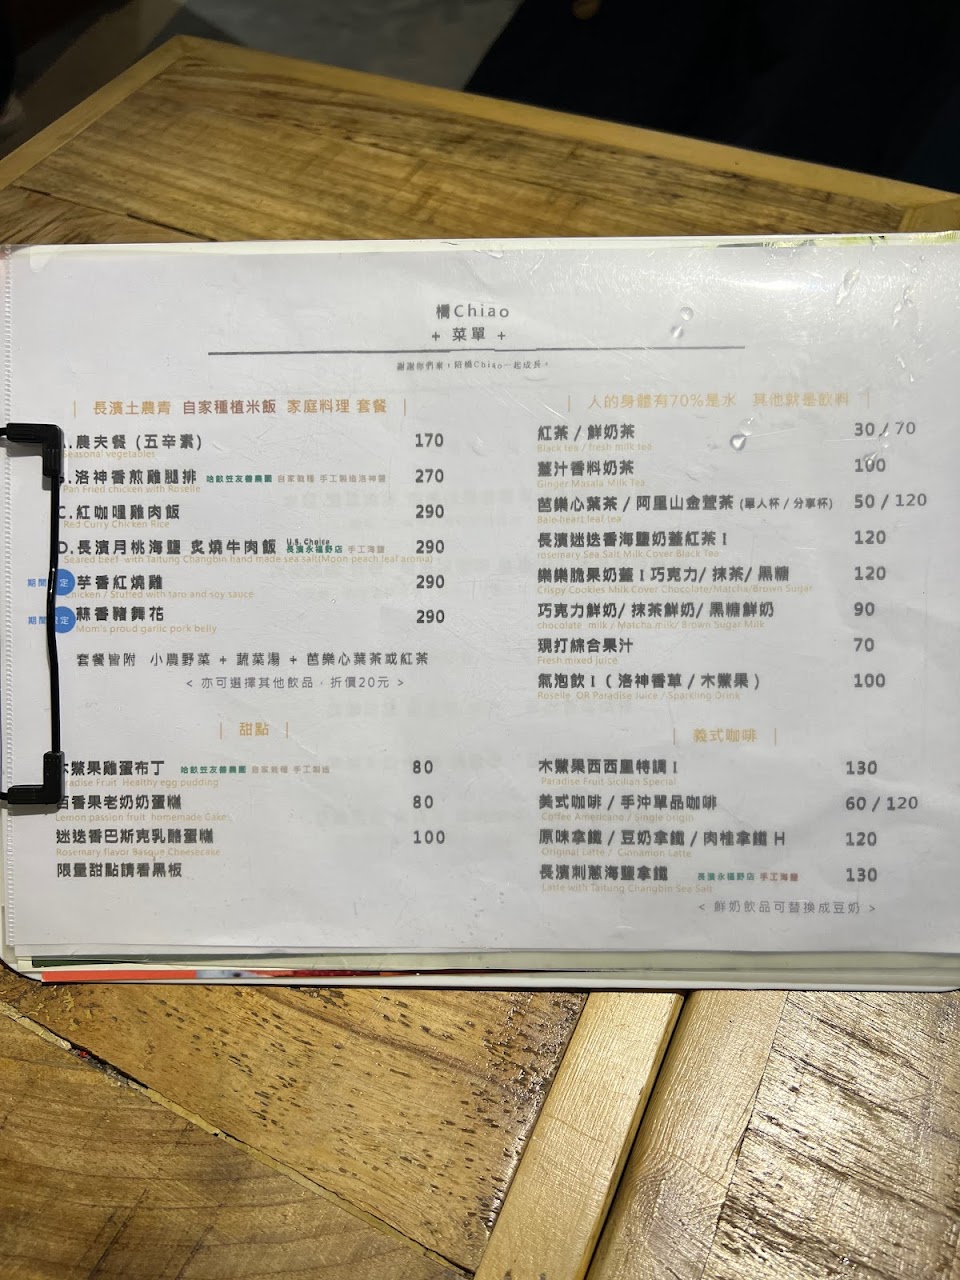 橋Chiao
+ 菜單 +
謝謝你們來,陪橋Chiao一起成長。
| 長濱土農青 自家種植米飯 家庭料理 套餐 |
.農夫餐 (五辛素) 170
Seasonal vegetables
.洛神香煎雞腿排 哈畝笠友善農園 自家栽種 手工製造洛神醬 270
Pan Fried chicken with Roselle
C.紅咖哩雞肉飯 290
Red Curry Chicken Rice
D.長濱月桃海鹽 炙燒牛肉飯 U.S. Choice 長濱永福野店 手工海鹽 290
Seared beef with Taitung Changbin hand made sea salt(Moon peach leaf aroma)
期間 定 芋香紅燒雞 290
Chicken / Stuffed with taro and soy sauce
期間限定 蒜香豬舞花 290
Mom's proud garlic pork belly
套餐皆附 小農野菜 + 蔬菜湯 + 芭樂心葉茶或紅茶
< 亦可選擇其他飲品,折價20元 >
| 甜點 |
木鱉果雞蛋布丁 哈畝笠友善農園 自家栽種 手工製造 80
Paradise Fruit Healthy egg pudding
百香果老奶奶蛋糕 80
Lemon passion fruit homemade Cake
迷迭香巴斯克乳酪蛋糕 100
Rosemary flavor Basque Cheesecake
限量甜點請看黑板
| 人的身體有70%是水 其他就是飲料 |
紅茶 / 鮮奶茶 30 / 70
Black tea / fresh milk tea
薑汁香料奶茶 100
Ginger Masala Milk Tea
芭樂心葉茶 / 阿里山金萱茶 (單人杯 / 分享杯) 50 / 120
Bale-heart leaf tea
長濱迷迭香海鹽奶蓋紅茶 I 120
rosemary Sea Salt Milk Cover Black Tea
樂樂脆果奶蓋 I 巧克力/ 抹茶/ 黑糖 120
Crispy Cookies Milk Cover/ Chocolate/Matcha/Brown Sugar
巧克力鮮奶/ 抹茶鮮奶/ 黑糖鮮奶 90
chocolate milk / Matcha milk/ Brown Sugar Milk
現打綜合果汁 70
Fresh mixed juice
氣泡飲 I ( 洛神香草 / 木鱉果 ) 100
Roselle OR Paradise Juice / Sparkling Drink
| 義式咖啡 |
木鱉果西西里特調 I 130
Paradise Fruit-Sicilian Special
美式咖啡 / 手沖單品咖啡 60 / 120
Coffee Americano / Single origin
原味拿鐵 / 豆奶拿鐵 / 肉桂拿鐵 H 120
Original Latte / Cinnamon Latte
長濱刺蔥海鹽拿鐵 長濱永福野店 手工海鹽 130
Latte with Taitung Changbin Sea Salt
< 鮮奶飲品可替換成豆奶 >